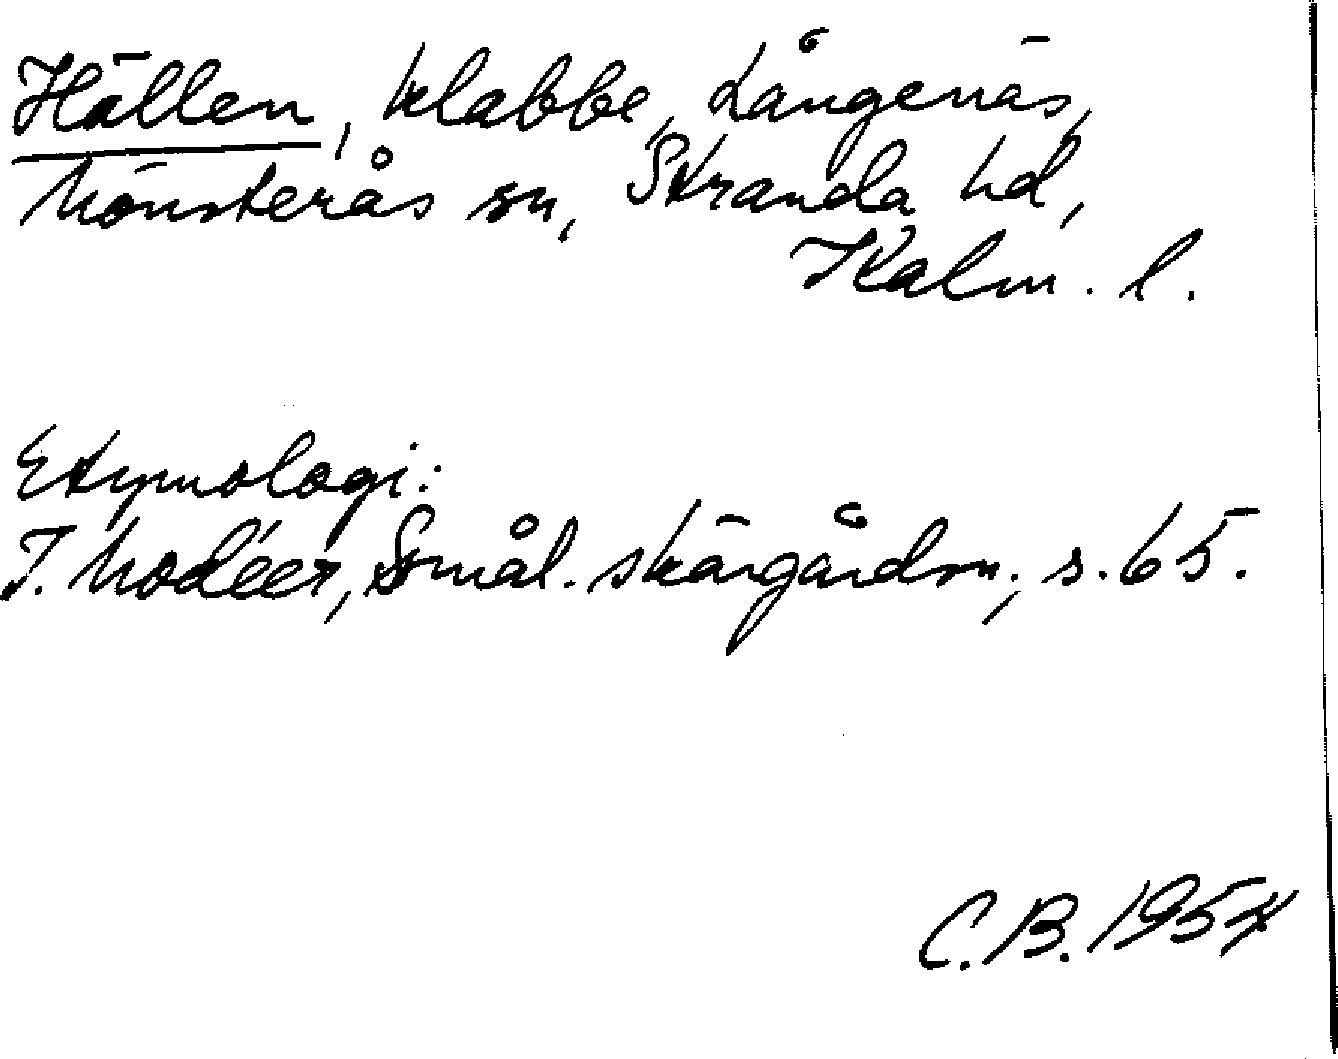 Hällen, klabbe, Långenäs,
Mönsterås sn, Stranda hd,
Kalm. l.
Etymologi:
I. Modéer, Smål. skärgårdsn., s. 65.
C.B. 1954